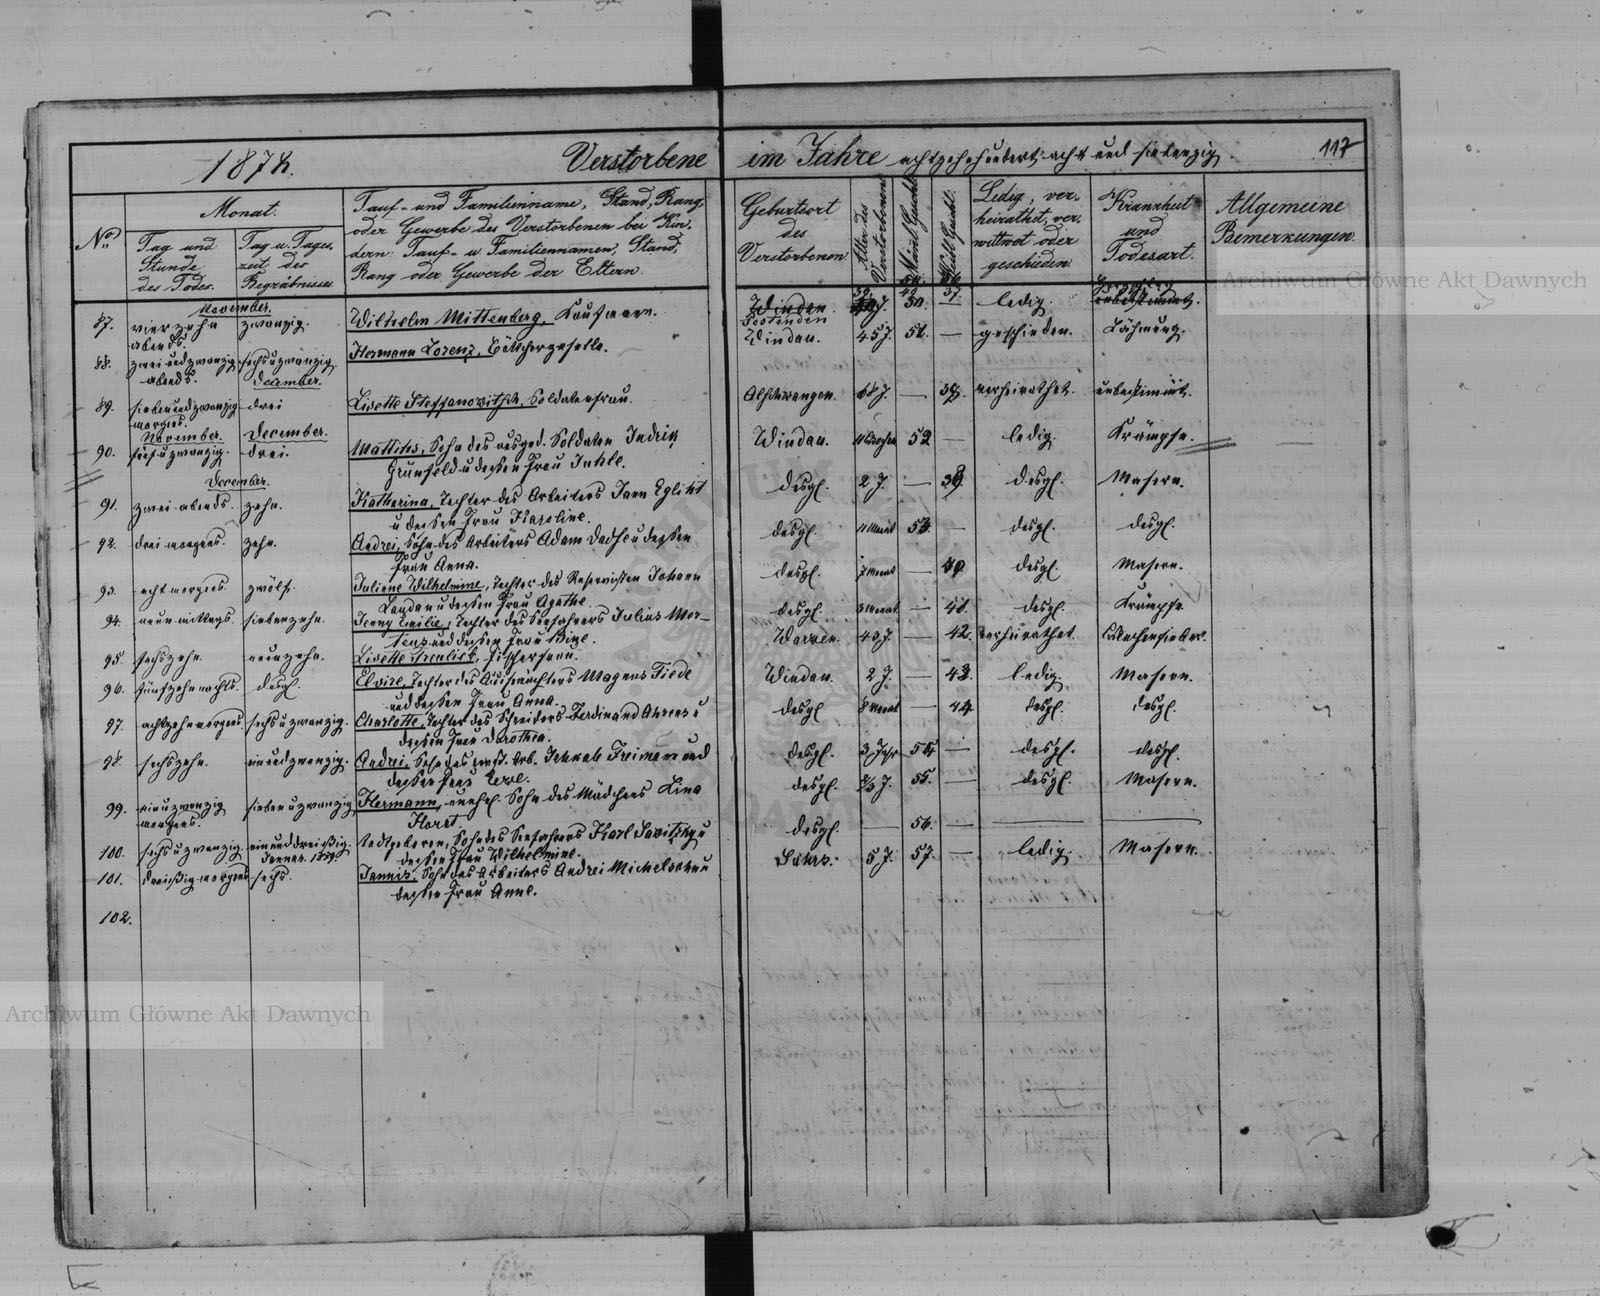 1878.
Verstorbene im Jahre achtzehnhundert acht und siebenzig.
117
No.
Monat.
Tag und Stunde des Todes.
Tag u. Tageszeit des Begräbnisses
Tauf- und Familienname, Stand, Rang,
oder Gewerbe des Verstorbenen bei Kin-
dern: Tauf- u Familiennamen, Stand,
Rang oder Gewerbe der Eltern.
Geburtsort
des
Verstorbenen
Alter des Verstorbenen
Männl. Geschl.
Weibl. Geschl.
Ledig, ver-
heirathet, ver-
wittwet oder
geschieden.
Krankheit
und
Todesart.
Allgemeine
Bemerkungen.
November.
87. vierzehn abends. zwanzig. Wilhelm Mittenberg, Kaufmann. ledig.
88. zwei und zwanzig abends. sechs u zwanzig. Hermann Lorenz, Böttchergeselle. Windau. 45 J. 51. — geschieden. Lähmung.
December.
89. sieben und zwanzig morgens. drei Lisette Steffanowitsch, Soldatenfrau. Alschwangen. 68 J. — verheirathet unbestimmt.
November. December.
90. drei. Matthis, Sohn des Soldaten Indrik
Grünfeld u dessen Frau Juhle. Windau. 52 — ledig. Krämpfe.
December.
91. zwei abends. zehn. Katharina, Tochter des Arbeiters Jann Egliht
u dessen Frau Karoline. desgl. 2 J. — desgl. Masern.
92. drei morgens. zehn. Andrei, Sohn des Arbeiters Adam Dadse u dessen
Frau Anna. desgl. 11 Monat 53. — desgl. desgl.
93. acht morgens. zwölf. Juliane Wilhelmine, Tochter des Reservisten Johann
Landau u dessen Frau Agathe. desgl. 7 Monat — 40 desgl. Masern.
94. neun mittags. siebenzehn. Jenny Emilie, Tochter des Seefahrers Julius
und dessen Frau Bine. desgl. 3 Monat. — 41. desgl. Krämpfe
95. sechszehn. neunzehn. Lisette Freulist, Fischerfrau. Warwen. 43 J. — 42. verheirathet.
96. fünfzehn nachts. desgl. Elvire, Tochter des Magnus Tiede
und dessen Frau Anna. Windau. 2 J. — 43. ledig. Masern.
97. achtzehn morgens sechs u zwanzig. Charlotte, Tochter des Schneiders Ferdinand Ahrens u
dessen Frau Dorothea. desgl. 8 Monat — 44 desgl. desgl.
98. sechszehn. ein und zwanzig. Andrei, Sohn des Arb. Jehkab Freiman und
dessen Frau desgl. 54. — desgl. desgl.
99. morgens. sieben u zwanzig Hermann, unehel. Sohn des Mädchens Lina
Horst. desgl. 55. — desgl. Masern.
100. sechs u zwanzig ein und dreißig. todtgeboren, Sohn des Seefahrers Karl Sawitzky u
dessen Frau Wilhelmine. desgl. — 56. —
Januar 1879.
101. dreißig morgens sechs. Jannis, Sohn des Arbeiters Andrei Michelsohn u
dessen Frau Anne. 5 J. 57. — ledig. Masern.
102.
Archiwum Główne Akt Dawnych
Archiwum Główne Akt Dawnych